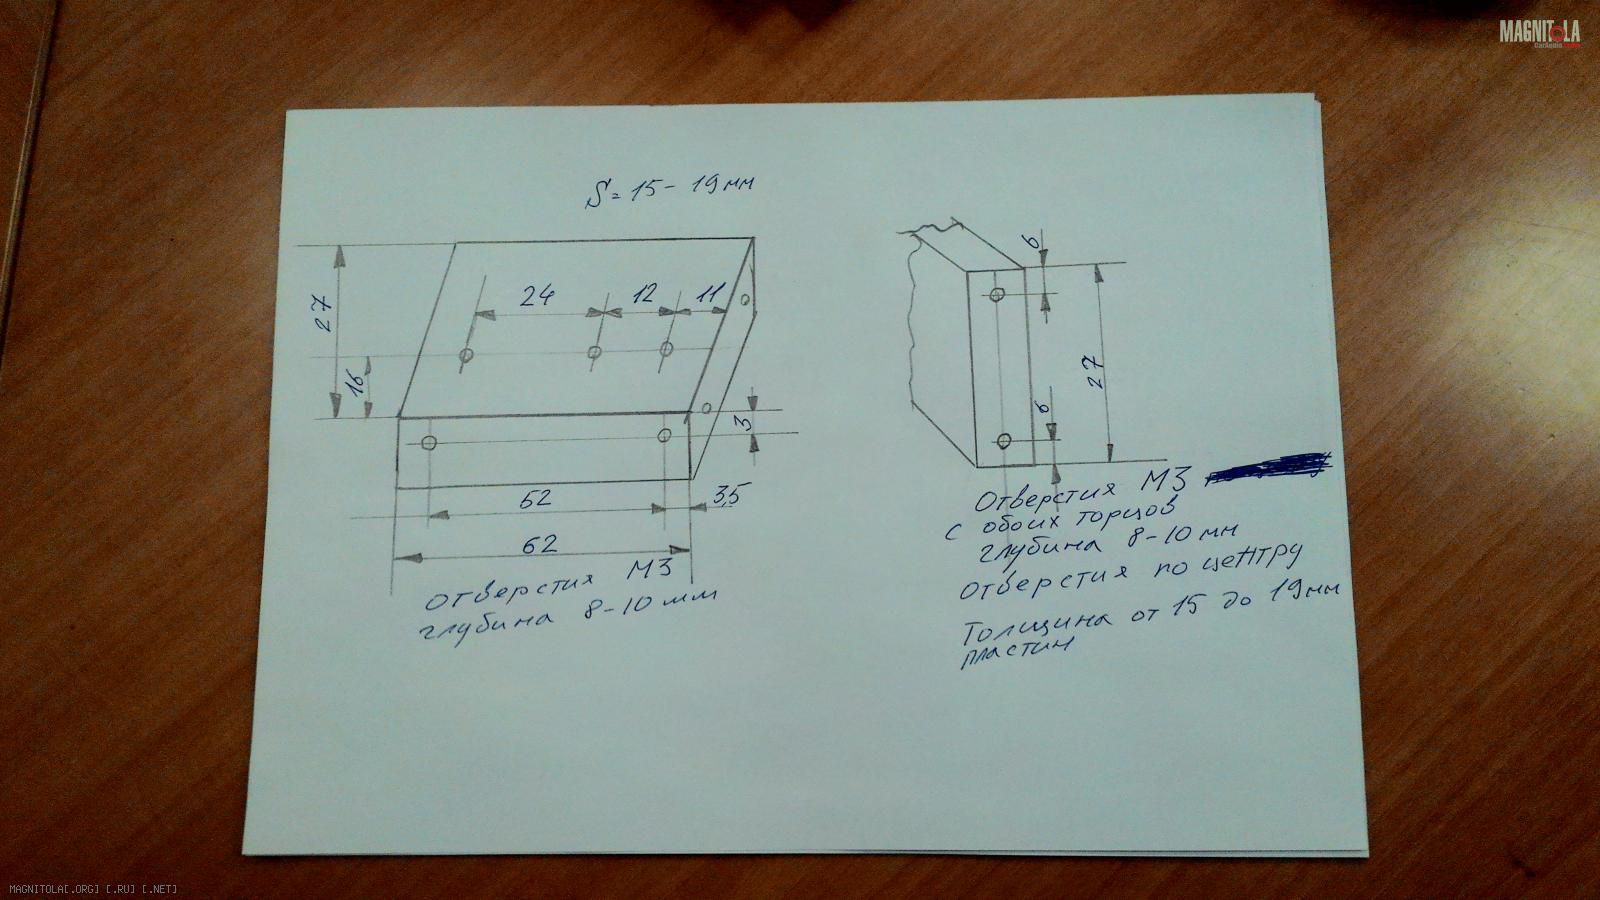 MAGNITOLA
S=15-19мм
6
27
24
12
11
16
3
6
27
52
3,5
62
Отверстия М3
глубина 8-10 мм
Отверстия М3
с обоих торцов
глубина 8-10 мм
Отверстия по центру
Толщина от 15 до 19мм
пластин
MAGNITOLA[.ORG] [.RU] [.NET]